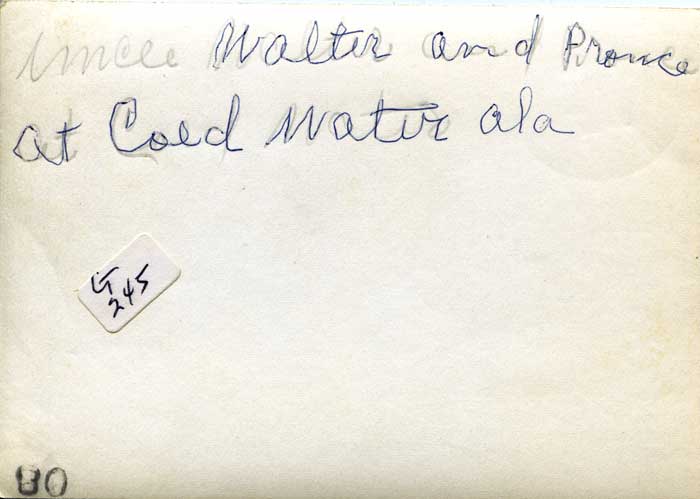 uncle Walter and Pronce
at Cold Water ala
LT
245
80